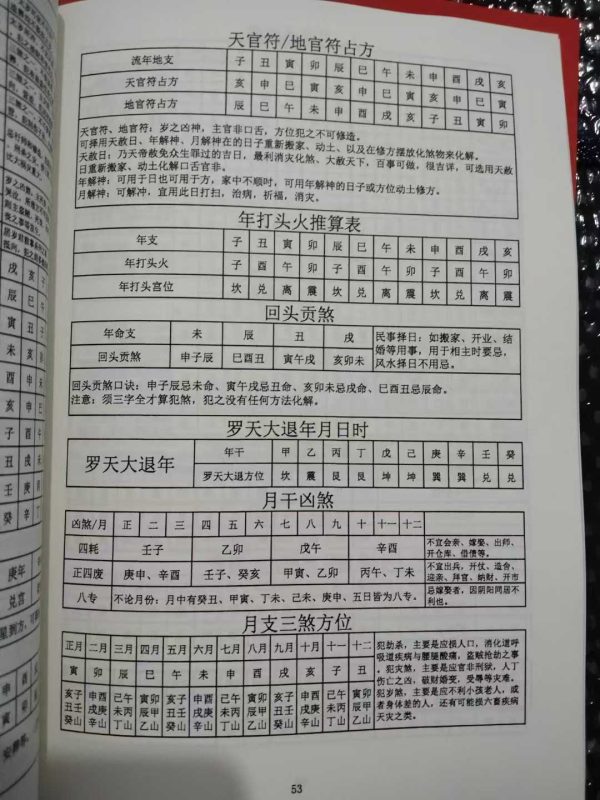 天官符/地官符占方
流年地支 子 丑 寅 卯 辰 巳 午 未 申 酉 戌 亥
天官符占方 亥 申 巳 寅 亥 申 巳 寅 亥 申 巳 寅
地官符占方 辰 巳 午 未 申 酉 戌 亥 子 丑 寅 卯
天官符、地官符：岁之凶神，主官非口舌，方位犯之不可修造。
可择用天赦日、年解神、月解神在的日子重新搬家、动土、以及在修方摆放化煞物来化解。
天赦日：乃天帝赦免众生罪过的吉日，最利消灾化煞、大赦天下，百事可做，很吉详，可选用天赦
日重新搬家、动土化解口舌官非。
年解神：可用于日也可用于方，家中不顺时，可用年解神的日子或方位动土修方。
月解神：可解冲，宜用此日打扫，治病，祈福，消灾。
年打头火推算表
年支 子 丑 寅 卯 辰 巳 午 未 申 酉 戌 亥
年打头火 子 酉 午 卯 子 酉 午 卯 子 酉 午 卯
年打头宫位 坎 兑 离 震 坎 兑 离 震 坎 兑 离 震
回头贡煞
年命支 未 辰 丑 戌
回头贡煞 申子辰 巳酉丑 寅午戌 亥卯未
民事择日：如搬家、开业、结
婚等用事，用于相主时要忌，
风水择日不用忌。
回头贡煞口诀：申子辰忌未命、寅午戌忌丑命、亥卯未忌戌命、巳酉丑忌辰命。
注意：须三字全才算犯煞，犯之没有任何方法化解。
罗天大退年月日时
罗天大退年
年干 甲 乙 丙 丁 戊 己 庚 辛 壬 癸
罗天大退方位 坎 震 艮 艮 坤 坤 巽 巽 兑 兑
月干凶煞
凶煞/月 正 二 三 四 五 六 七 八 九 十 十一 十二
四耗 壬子 乙卯 戊午 辛酉
不宜会亲、嫁娶、出师、
开仓库、借债等。
正四废 庚申、辛酉 壬子、癸亥 甲寅、乙卯 丙午、丁未
不宜出兵，开仗、造舍、
迎亲、拜官、纳财、开市
八专 不论月份：月中有癸丑、甲寅、丁未、己未、庚申、五日皆为八专。
忌嫁娶者，因阴阳同居不
利也。
月支三煞方位
正月 二月 三月 四月 五月 六月 七月 八月 九月 十月 十一 十二
寅 卯 辰 巳 午 未 申 酉 戌 亥 子 丑
亥子 申酉 己午 寅卯 亥子 申酉 己午 寅卯 亥子 申酉 己午 寅卯
丑壬 戌庚 未丙 辰甲 丑壬 戌庚 未丙 辰甲 丑壬 戌庚 未丙 辰甲
癸山 辛山 丁山 乙山 癸山 辛山 丁山 乙山 癸山 辛山 丁山 乙山
犯劫杀，主要是应损人口，消化道呼
吸道疾病与腰腿酸痛，盗贼抢劫之事。
犯灾煞，主要是应官非刑狱，人丁
伤亡之凶，破财婚变，受辱等灾难。
犯岁煞，主要是应不利小孩老人，或
者身体差的人，还有可能损六畜疾病
天灾之类。
53